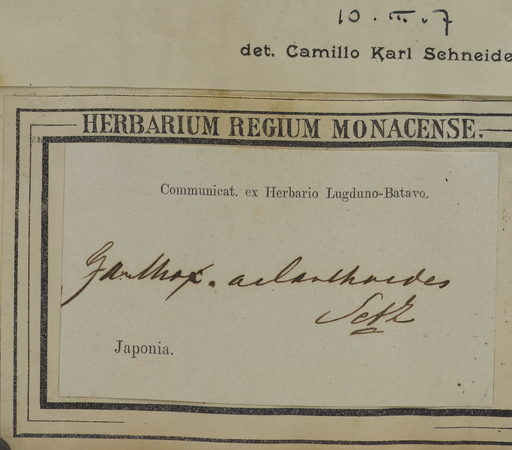 10. III. 07
det. Camillo Karl Schneide
HERBARIUM REGIUM MONACENSE.
Communicat. ex Herbario Lugduno-Batavo.
Zanthox. ailanthoides
S et Z
Japonia.